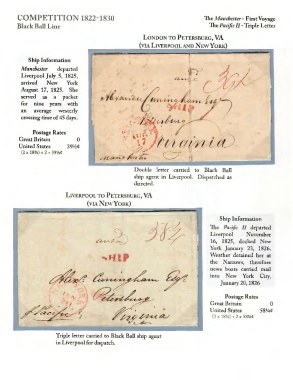 COMPETITION 1822-1830
Black Ball Line
The Manchester - First Voyage
The Pacific II - Triple Letter
LONDON TO PETERSBURG, VA
(VIA LIVERPOOL AND NEW YORK)
Ship Information
Manchester departed
Liverpool July 5, 1825,
arrived New York
August 17, 1825. She
served as a packet
for nine years
with an average westerly
crossing time of 45 days.
Postage Rates
Great Britain 0
United States 39½¢
(2 x 18¾) + 2 = 39½¢
SHIP
Alexander Cuningham Esqr
Petersburg
Virginia
Manchester
AUG
17
Double letter carried to Black Ball
ship agent in Liverpool. Dispatched as
directed.
LIVERPOOL TO PETERSBURG, VA
(VIA NEW YORK)
SHIP
Alexr. Cuningham Esqr.
Petersburg
Virginia
p Pacific
Ship Information
The Pacific II departed
Liverpool November
16, 1825, docked New
York January 23, 1826.
Weather detained her at
the Narrows, therefore
news boats carried mail
into New York City,
January 20, 1826
Postage Rates
Great Britain 0
United States 58¼¢
(3 x 18¾) + 2 = 58¼¢
Triple letter carried to Black Ball ship agent
in Liverpool for dispatch.